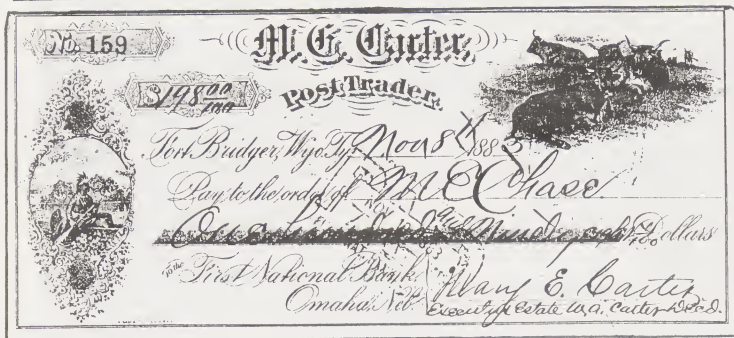 No. 159
M. E. Carter,
Post Trader.
$198 00/100
Fort Bridger, Wyo. Ty. Nov 8th 1883
Pay to the order of M E Chase
One hundred and Ninety eight 00/100 Dollars
To the First National Bank,
Omaha, Neb.
Mary E. Carter
Execut of Estate W. A. Carter Decd.